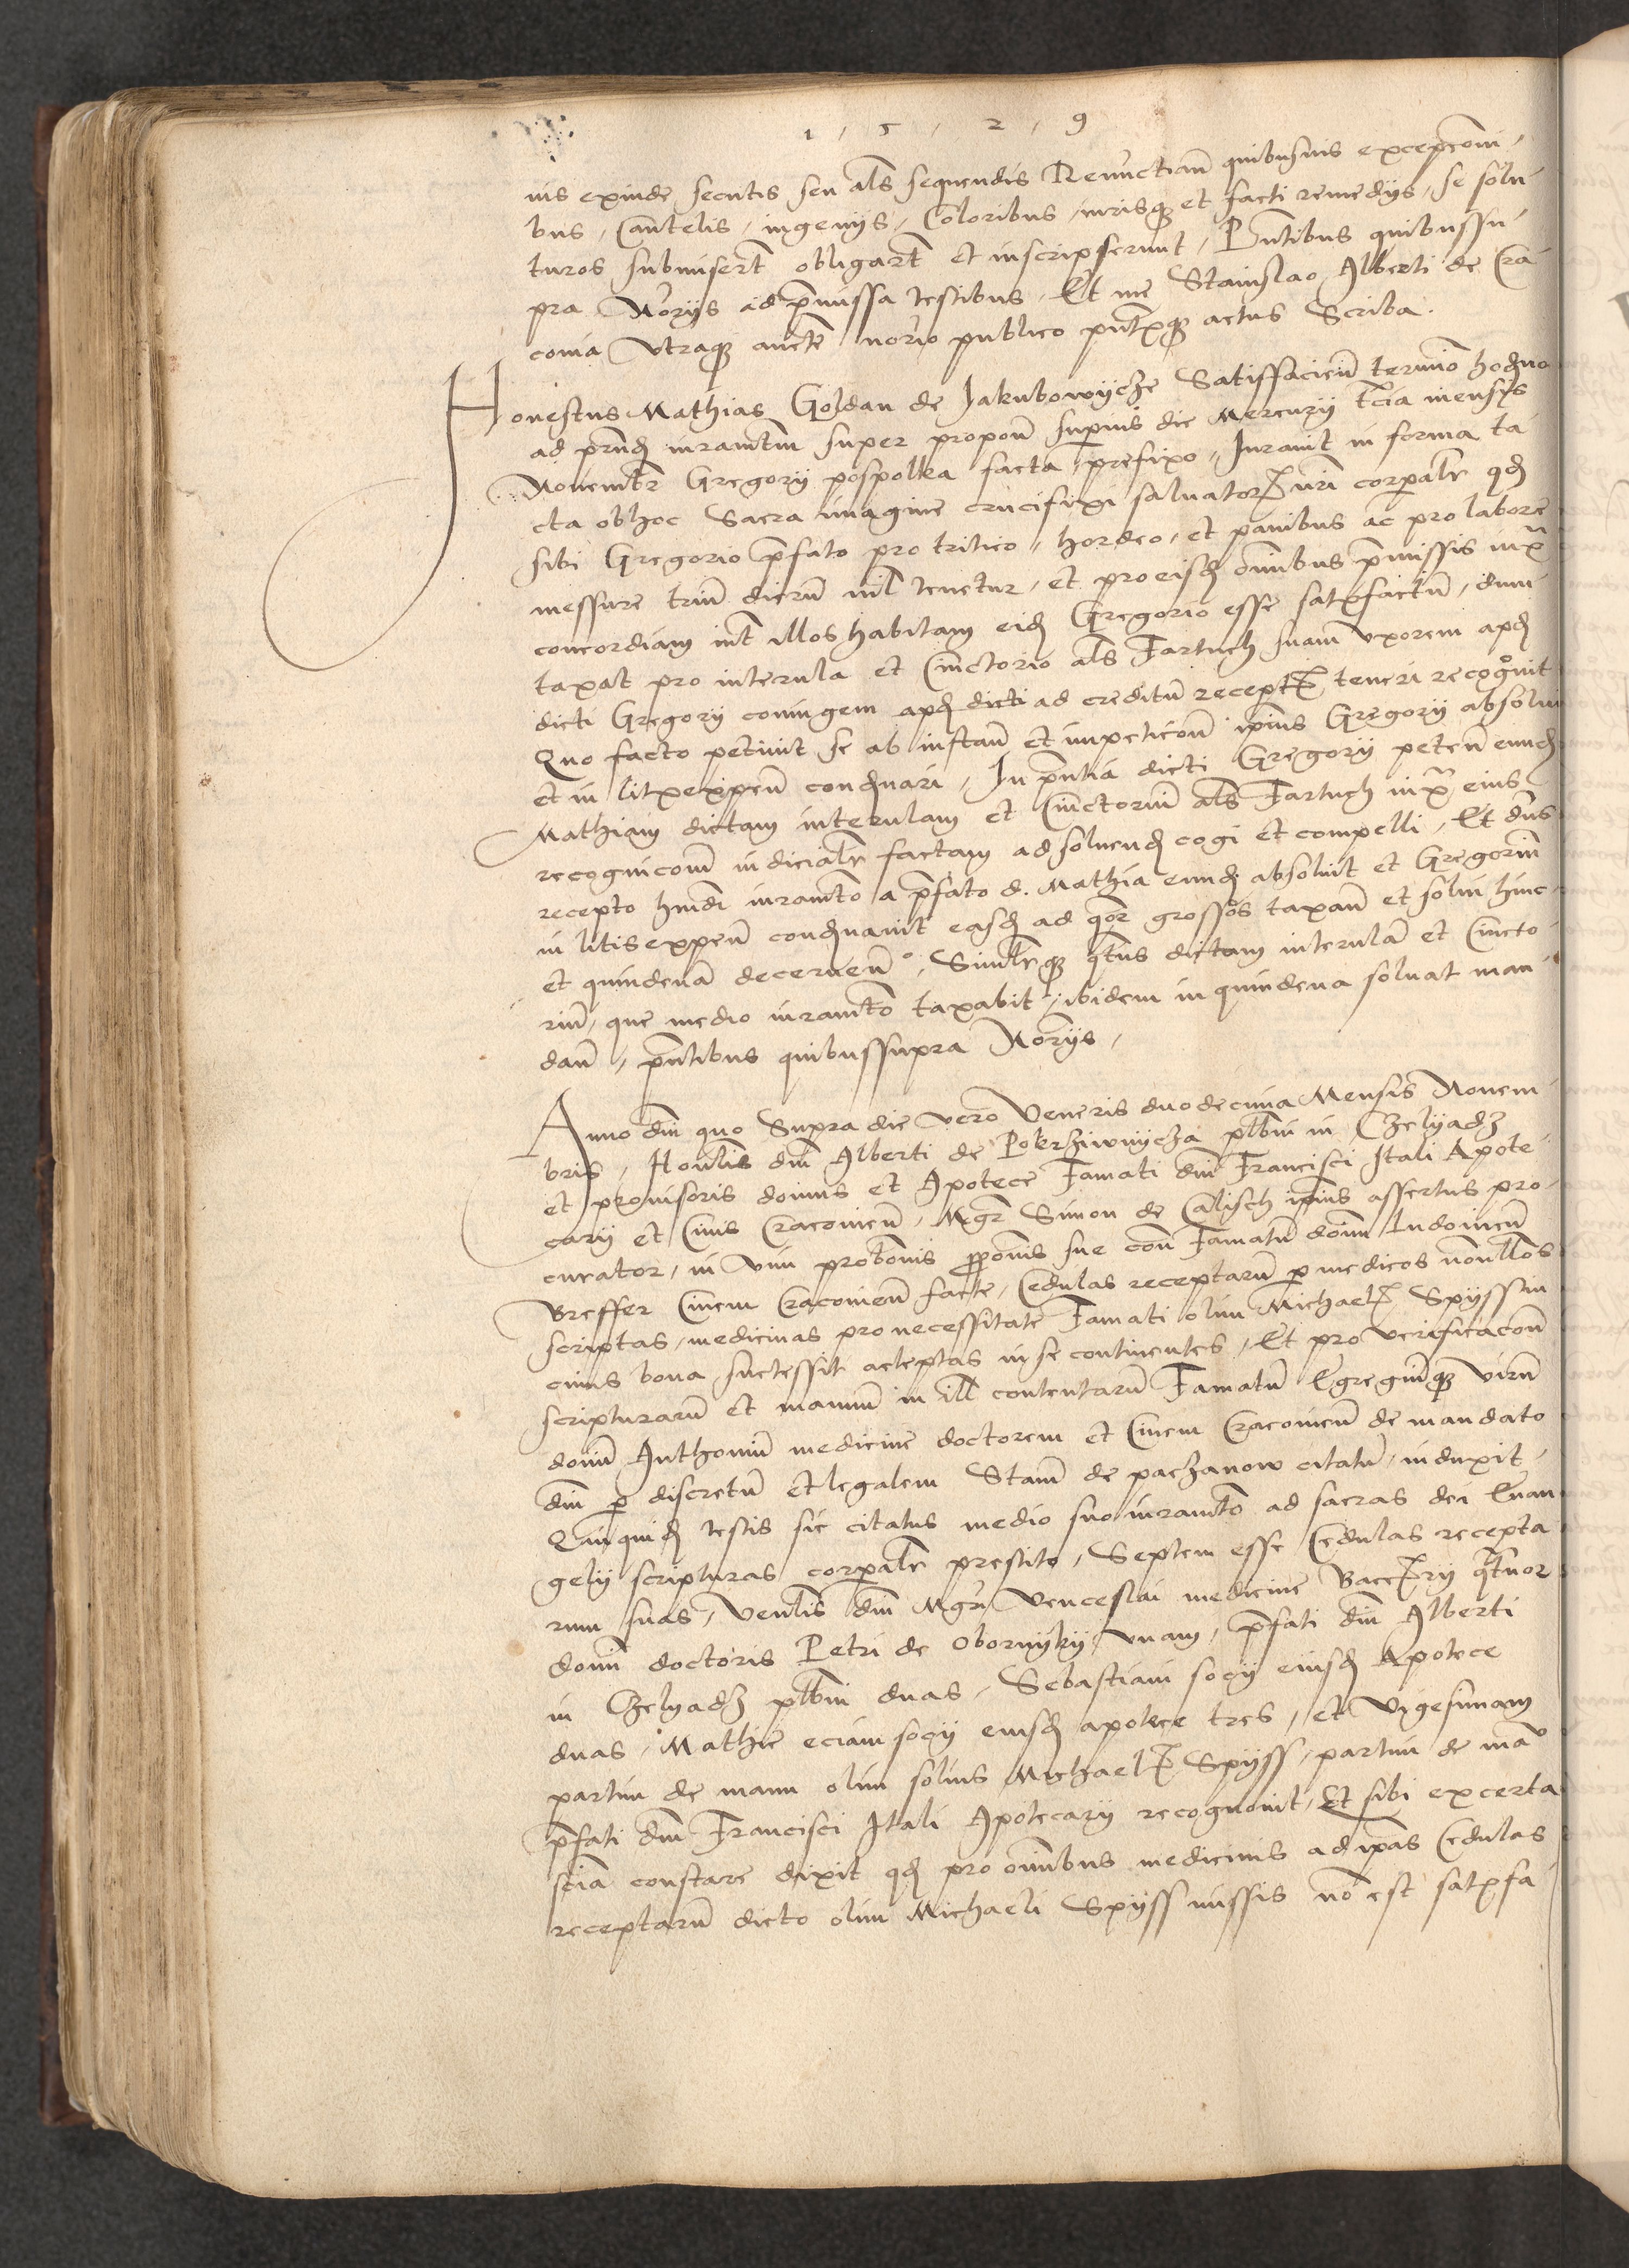 1 5 2 9
nis exinde secutis seu als sequendis Renu͂ctian͂ quibusuis excepconi
bus, Cautelis, ingenijs, Coloribus, iurisqȝ et facti remedijs, se solu
turos submisert͂ obligart͂ et inscripserunt, Pn͂tibus quibussu
pra No͂rijs ad p͂missa testibus, Et me Stanislao Alberti de Cra
couia Vtraqȝ aucte͂ no͂rio publico pn͂t͂qȝ actus Scriba.
Honestus Mathias Goldan de Jakubowijcze Satisfaciен͂ termi͂o hod͂no
ad prn͂d͂ iuramt͂m super propon͂ superius die Mercurij t͂cia mensis
Nouembr͂ Gregorij pospolka facta, prefixo, Jurauit in forma ta
cta obhoc Sacra imagine crucifixi saluator͂ n͂ri corpalr͂ qd͂
sibi Gregorio p͂fato pro tritico, hordeo, et panibus ac pro labore
messure triu͂ dieru͂ nil tenetur, et pro eisd͂ om͂ibus p͂missis iux͂
concordiam int͂ illos habitam eid͂ Gregorio esse satisfactu͂, dum
taxat pro interula et Cinctorio als Fartuch suam vxorem apd͂
dicti Gregorij coniugem apd͂ dicti ad creditu͂ recept͂ teneri recognit
Quo facto petiuit se ab instan͂ et impeticon͂ ipius Gregorij absolui
et in litis expen͂ cond͂nari, In pn͂tia dicti Gregorij peten͂ eund͂
Mathiam dictam interulam et Cinctoriu͂ als Fartuch iux͂ eius
recognicon͂ iudicialr͂ factam ad soluend͂ cogi et compelli, Et dn͂s
recepto hm͂di iuramt͂o a p͂fato d. Mathia eund͂ absoluit et Gregoriu͂
in litis expen͂ cond͂nauit easd͂ ad qor͂ grossos taxan͂ et solui hinc
et quindena͂ decernen͂, Similr͂qȝ qt͂us dictam interula͂ et Cincto
riu͂, que medio iuramt͂o taxabit, ibidem in quindena soluat man
dan͂, pn͂tibus quibussupra No͂rijs,
Anno dn͂i quo Supra die vero Veneris duodecima Mensis Nouem
bris, Honlis dn͂i Alberti de Pokrziwnijcza plbni in Czelyadz
et prouisoris domus et Apotece Famati dn͂i Francisci Itali Apote
carij et Ciuis Cracouien͂, Mgr͂ Simon de Calisch ipius assertus pro
curator, in vim probonis ꝓponis sue con͂ Famatu͂ dom͂ Ludouicu͂
Breffer Ciuem Cracouien͂ facte, Cedulas receptaru͂ p͂ medicos nonullos
scriptas, medicinas pro necessitate Famati olim Michael͂ Spijss in
cuius bona successit acceptas in se continentes, Et pro verificacon͂
scripturaru͂ et manuu͂ in ill͂ contentaru͂ Famatu͂ Egregiu͂qȝ viru͂
dom͂ Anthoniu͂ medicine doctorem et Ciuem Cracouien͂ de mandato
dn͂i p͂ discretu͂ et legalem Stan͂ de paczanow citatu͂, induxit
Qui quid͂ testis sic citatus medio suo iuramt͂o ad sacras dei Euan
gelij scripturas corpalr͂ prestito, Septem esse Cedulas recepta
rum suas, Venlis dn͂i Mgr͂i Venceslai medicine Bacc͂rij qt͂uor
dom͂ doctoris Petri de Obornijky vnam, p͂fati dn͂i Alberti
in Czelyadz plbni duas, Sebastiani socij eiusd͂ Apotece
duas, Mathie eciam socij eiusd͂ apotece tres, et Vigesimam
partim de manu olim solius Michael͂ Spijss, partim de ma͂
p͂fati dn͂i Francisci Itali Apotecarij recognouit, Et sibi ex certa
scia͂ constare dixit qd͂ pro om͂ibus medicinis ad ipas Cedulas
receptaru͂ dicto olim Michaeli Spijss missis no͂ est satisfa